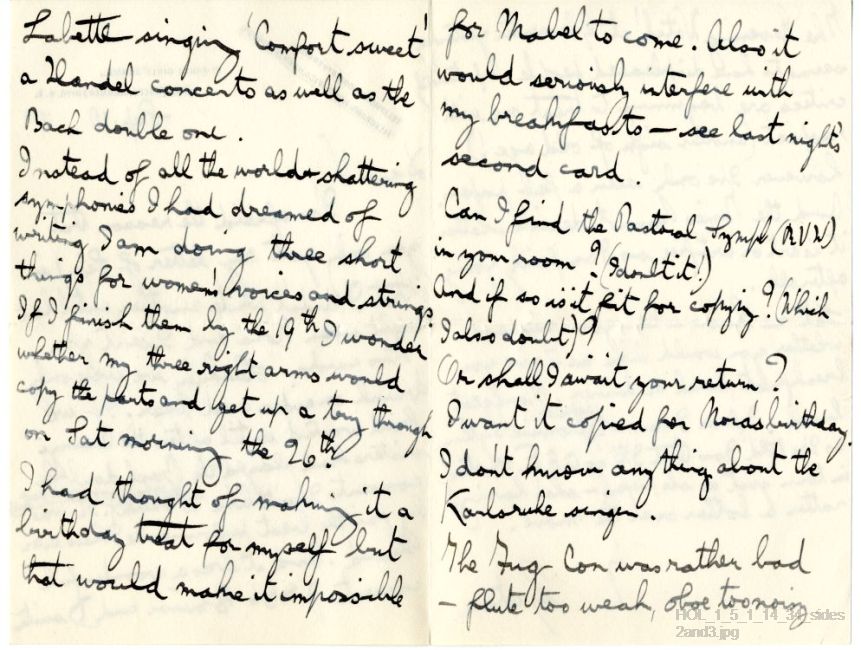 Labette singing 'Comfort sweet'
a Handel concerto as well as the
Bach double one.
Instead of all the world-shattering
symphonies I had dreamed of
writing I am doing three short
things for women's voices and strings.
If I finish them by the 19th I wonder
whether my three right arms would
copy the parts and get up a try through
on Sat morning the 26th?
I had thought of making it a
birthday treat for myself but
that would make it impossible
for Mabel to come. Also it
would seriously interfere with
my breakfasts — see last night's
second card.
Can I find the Pastoral Symph (RVW)
in your room? (I doubt it!)
And if so is it fit for copying? (Which
I also doubt)?
Or shall I await your return?
I want it copied for Nora's birthday.
I don't know anything about the
Karlsruhe singer.
The Fug Con was rather bad
— flute too weak, oboe too noisy
HOL_1_5_1_14_34, sides
2and3.jpg